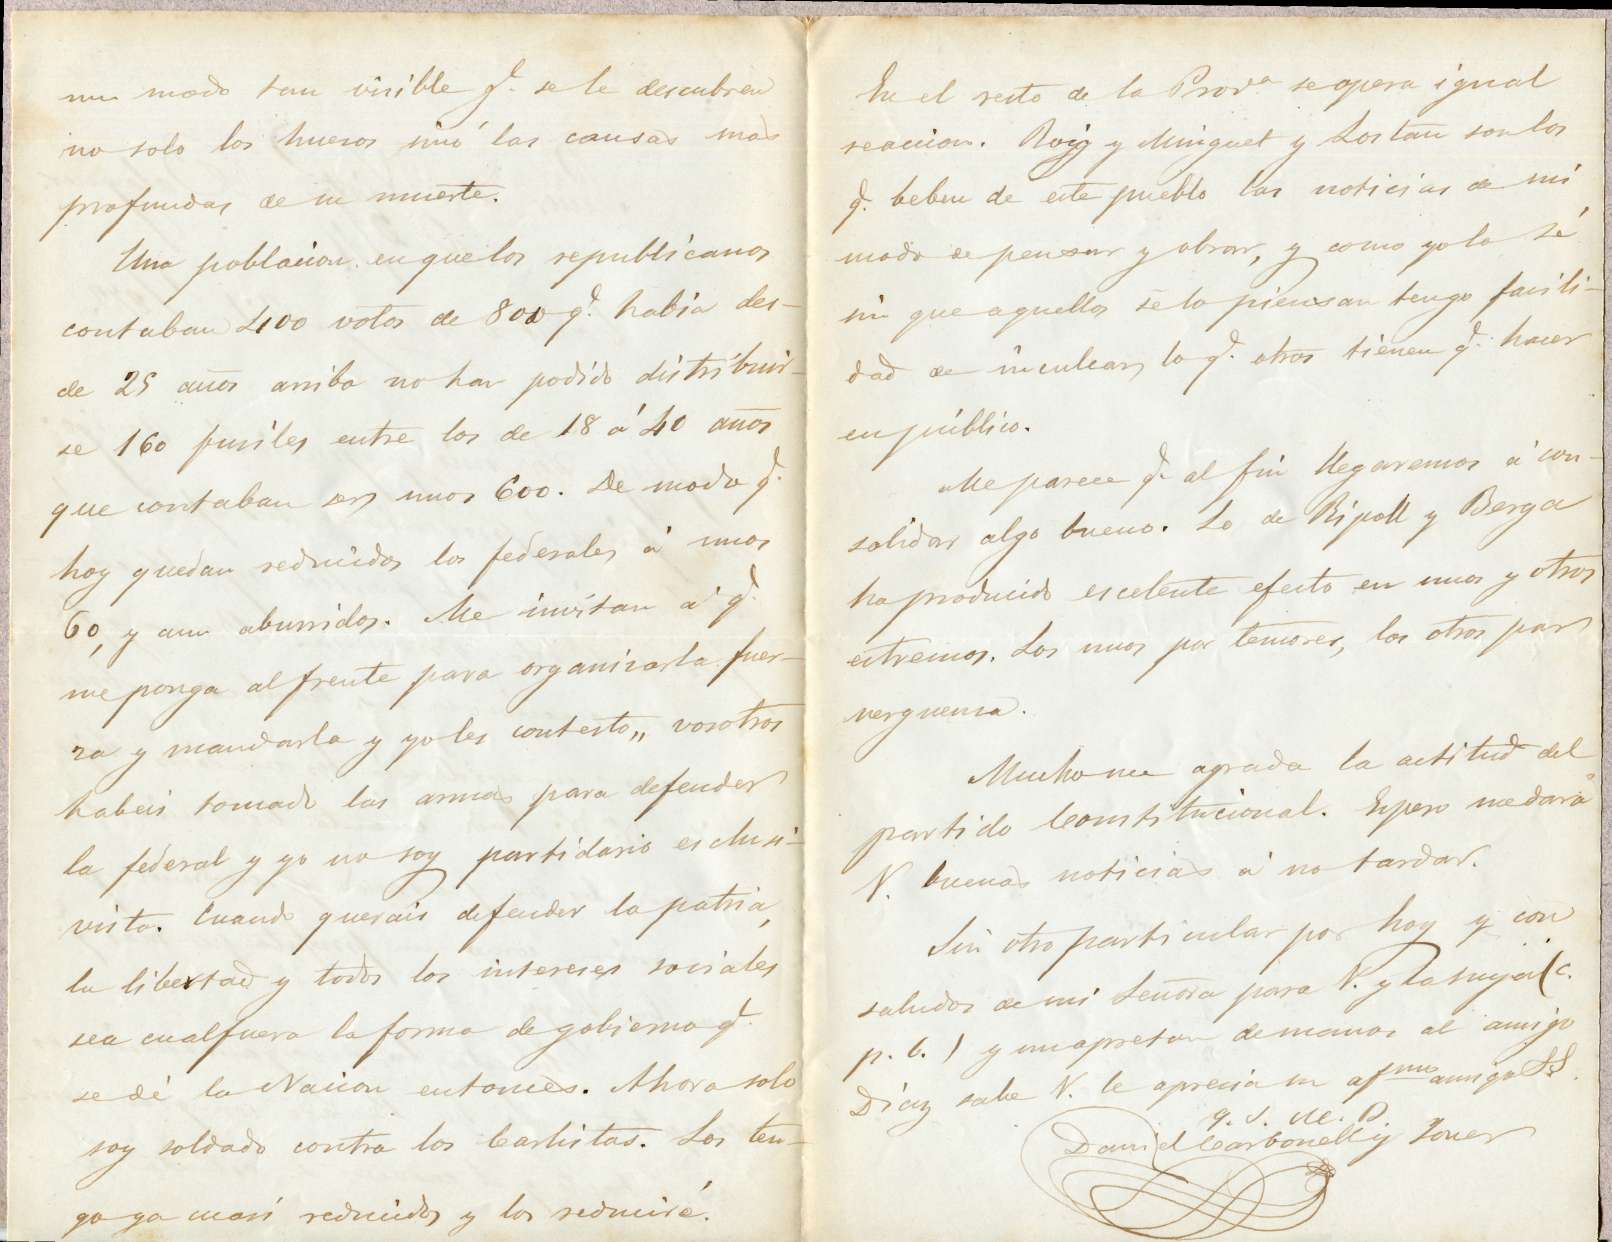 un modo tan visible q.e se le descubren
no solo los huesos sinó las causas mas
profundas de su muerte.
Una poblacion en que los republicanos
contaban 400 votos de 800 q.e habia des-
de 25 años arriba no han podido distribuir-
se 160 fusiles entre los de 18 á 40 años
que contaban ser unos 600. De modo q.e
hoy quedan reducidos los federales á unos
60, y aun aburridos. Me invitan á q.e
me ponga al frente para organizar la fuer-
za y mandarla y yo les contesto,, vosotros
habeis tomado las armas para defender
la federal y yo no soy partidario esclusi-
vista. Cuando querais defender la patria,
la libertad y todos los intereses sociales
sea cual fuera la forma de gobierno q.e
se dé la Nacion entonces. Ahora solo
soy soldado contra los Carlistas. Los ten-
go ya casi reducidos y los reduciré.
En el resto de la Prov.a se opera igual
reaccion. Roig y Minguet y Lostau son los
q.e beben de este pueblo las noticias de mi
modo de pensar y obrar, y como yo lo sé
sin que aquellos se lo piensan tengo facili-
dad de inculcar lo q.e otros tienen q.e hacer
en público.
Me parece q.e al fin llegaremos á con-
solidar algo bueno. Lo de Ripoll y Berga
ha producido escelente efecto en unos y otros
estremos. Los unos por temores, los otros por
verguensa.
Mucho me agrada la actitud del
partido Constitucional. Espero me dará
V. buenas noticias á no tardar.
Sin otro particular por hoy y con
saludos de mi Señora para V. y la suya (c.
p. b.) y un apreton de manos al amigo
Díaz sabe V. le aprecia su af.mo amigo S.S.
q. S. M. B.
David Carbonell y Jover